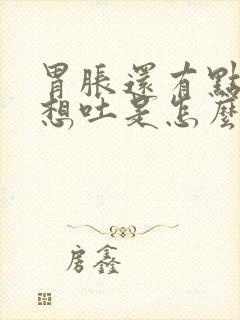 胃脹還有點
想吐是怎麼
房鑫